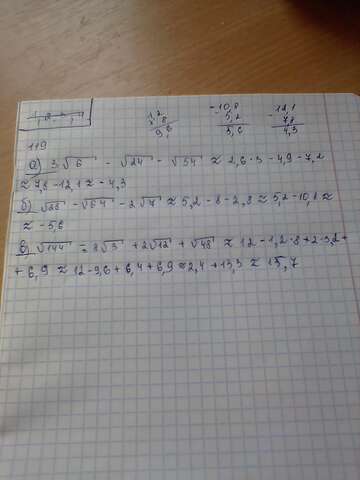 1,2
8
9,6
-10,8
5,2
3,6
-12,1
7,8
4,3
119
а) 3√6 - √24 - √54 ≈ 2,6·3 - 4,9 - 7,2
≈ 7,8 - 12,1 ≈ - 4,3
б) √28 - √64 - 2√7 ≈ 5,2 - 8 - 2,8 ≈ 5,2 - 10,8 ≈
≈ - 5,6
в) √144 - 8√3 + 2√12 + √48 ≈ 12 - 1,2·8 + 2·3,2 +
+ 6,9 ≈ 12 - 9,6 + 6,4 + 6,9 ≈ 2,4 + 13,3 ≈ 15,7